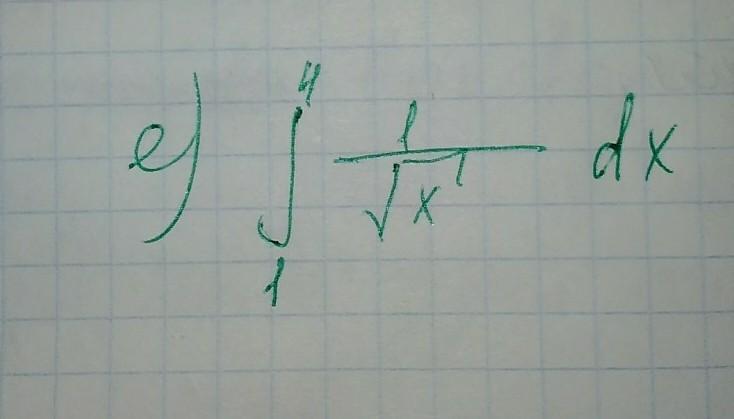 e) ∫₁⁴ 1/√x dx